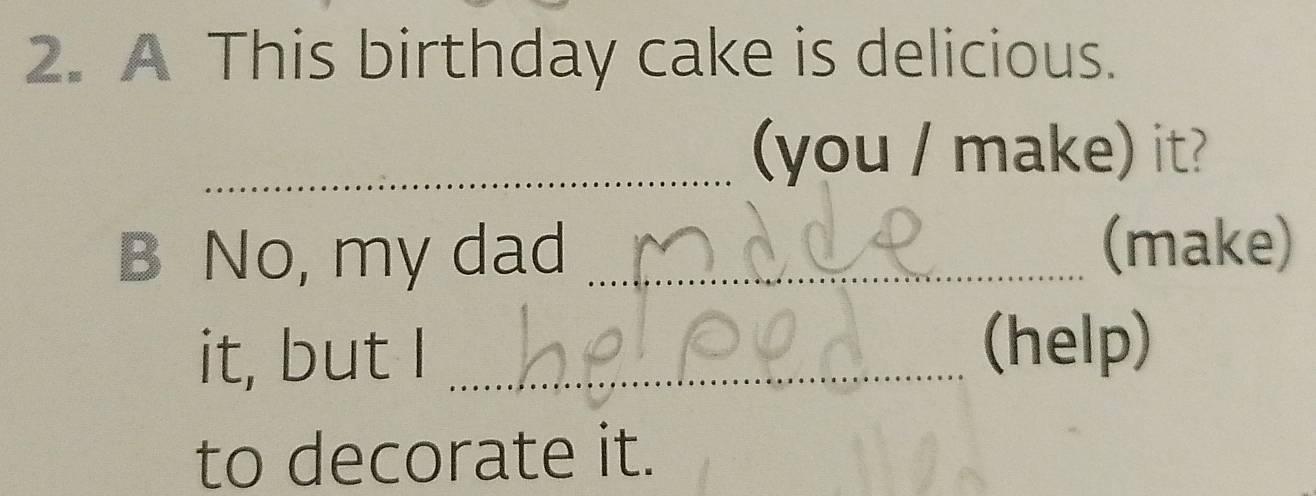 2. A This birthday cake is delicious.
(you / make) it?
B No, my dad made (make)
it, but I helped (help)
to decorate it.